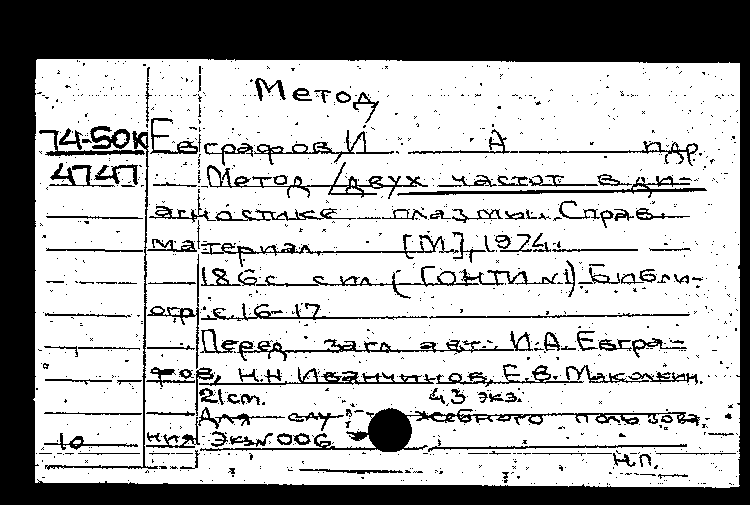 Метод
74-50к Евграфов, И А пдр.
4747 Метод /двух частот в ди=
агностике плазмы. Справ.
материал. [М.], 1974.
186 с. с ил. (ГОНТИ №1) Библи-
огр: с. 16-17
Перед загл. авт.: И.А. Евгра=
фов, Н.Н Иванчинов, Е.В. Маколкин.
21cm. 43 экз.
Для слу жебного пользова-
10 ния Экз№006
Н.П.